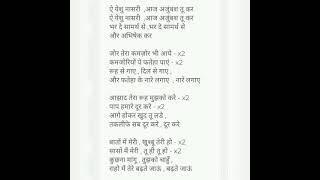 ऐ येशु नासरी ,आज अजुंबश तू कर
ऐ येशु नासरी ,आज अजुंबश तू कर
भर दे सामर्थ से ,भर दे सामर्थ से
और अभिषेक कर
जोर तेरा कमज़ोर भी आये - x2
कमजोरियों पे फतेहा पाएं - x2
रूह से गाए , दिल से गाए ,
और फतेहा के नारे लगाएं , नारे लगाएं
आझाद तेरा रूह मुझको करे - x2
पाप हमारे दूर करे - x2
आगे होकर खुद तू लडे ,
तकलीफे सब दूर करे , दूर करे
बातों में मेरी , खुश्बु तेरी हो - x2
सासों में मेरी , तू ही तू हो - x2
कुछना मांगू , तुझको चाहूँ ,
राहो में तेरे बढ़ते जाऊं , बढ़ते जाऊं